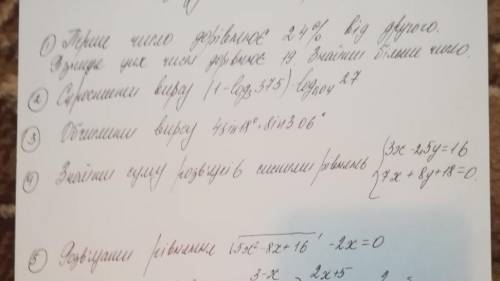 ① Перше число дорівнює 24% від другого.
Різниця цих чисел дорівнює 19 Знайти більше число.
② Спростити вираз (1 - log₃375) · log₀,₀₄ 27
③ Обчислити вираз 4sin18° · sin306°
④ Знайти суму розв'язків системи рівнянь { 3x - 2,5y = 16
7x + 8y + 18 = 0
⑤ Розв'язати рівняння √5x² - 8x + 16 - 2x = 0
3-x 2x+5